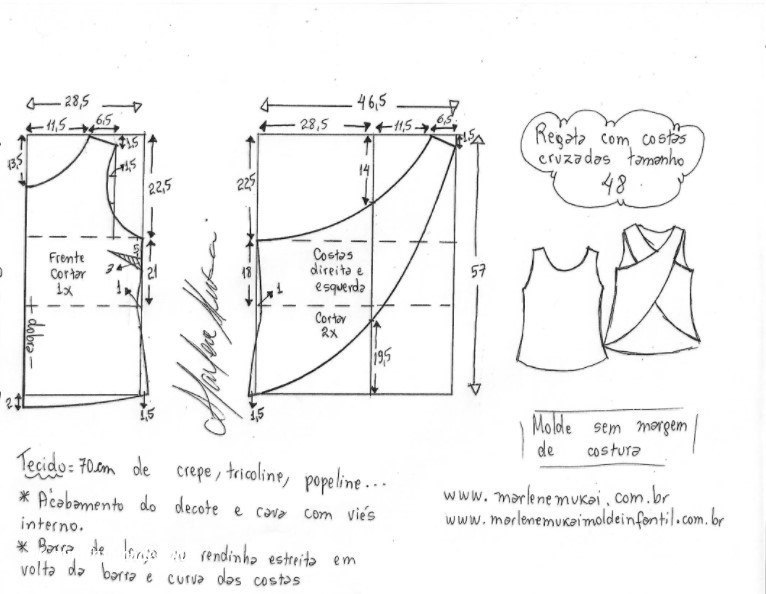 28,5
11,5
6,5
1,5
13,5
1,5
22,5
5
Frente
Cortar
1x
2
21
1
dobra
2
1,5
46,5
28,5
11,5
6,5
1,5
14
22,5
57
Costas
direita e
esquerda
18
1
Cortar
2x
19,5
1,5
Marlene Mukai
Regata com costas
cruzadas tamanho
48
Molde sem margem
de costura
Tecido: 70cm de crepe, tricoline, popeline...
* Acabamento do decote e cava com viés
interno.
* Barra de rendinha estreita em
volta da barra e curva das costas
www.marlenemukai.com.br
www.marlenemukaimoldeinfantil.com.br